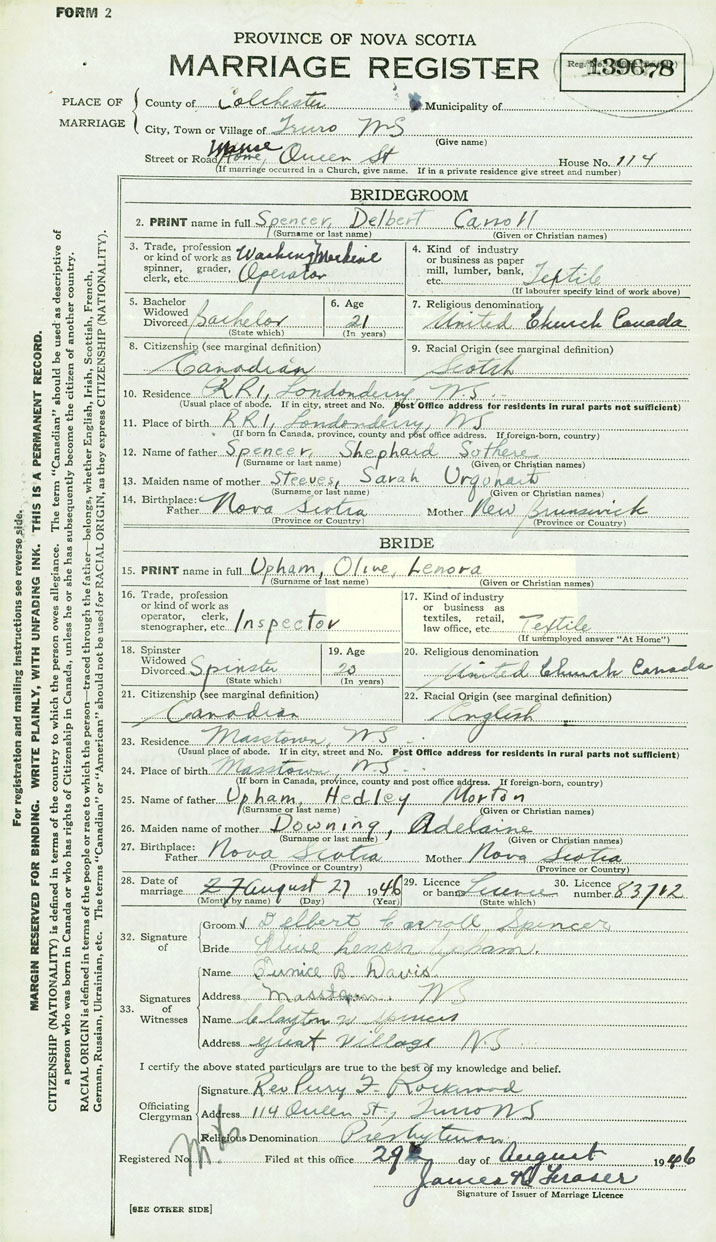 FORM 2
PROVINCE OF NOVA SCOTIA
MARRIAGE REGISTER
139678
PLACE OF MARRIAGE
County of Colchester Municipality of
City, Town or Village of Truro NS
(Give name)
Street or Road Manse, Queen St House No. 114
(If marriage occurred in a Church, give name. If in a private residence give street and number)
BRIDEGROOM
2. PRINT name in full Spencer, Delbert Carroll
(Surname or last name) (Given or Christian names)
3. Trade, profession or kind of work as spinner, grader, clerk, etc. Washing Machine Operator
4. Kind of industry or business as paper mill, lumber, bank, etc. Textile
(If labourer specify kind of work above)
5. Bachelor Widowed Divorced Bachelor
(State which)
6. Age 21
(In years)
7. Religious denomination
United Church Canada
8. Citizenship (see marginal definition)
Canadian
9. Racial Origin (see marginal definition)
Scotch
10. Residence RR1, Londonderry, NS
(Usual place of abode. If in city, street and No. Post Office address for residents in rural parts not sufficient)
11. Place of birth RR1, Londonderry, NS
(If born in Canada, province, county and post office address. If foreign-born, country)
12. Name of father Spencer, Shephard Suthere
(Surname or last name) (Given or Christian names)
13. Maiden name of mother Steeves, Sarah Urquhart
(Surname or last name) (Given or Christian names)
14. Birthplace: Father Nova Scotia Mother New Brunswick
(Province or Country) (Province or Country)
BRIDE
15. PRINT name in full Upham, Olive, Lenora
(Surname or last name) (Given or Christian names)
16. Trade, profession or kind of work as operator, clerk, stenographer, etc. Inspector
17. Kind of industry or business as textiles, retail, law office, etc. Textile
(If unemployed answer "At Home")
18. Spinster Widowed Divorced Spinster
(State which)
19. Age 20
(In years)
20. Religious denomination
United Church Canada
21. Citizenship (see marginal definition)
Canadian
22. Racial Origin (see marginal definition)
English
23. Residence Masstown, NS
(Usual place of abode. If in city, street and No. Post Office address for residents in rural parts not sufficient)
24. Place of birth Masstown NS
(If born in Canada, province, county and post office address. If foreign-born, country)
25. Name of father Upham, Hedley Morton
(Surname or last name) (Given or Christian names)
26. Maiden name of mother Downing, Adelaine
(Surname or last name) (Given or Christian names)
27. Birthplace: Father Nova Scotia Mother Nova Scotia
(Province or Country) (Province or Country)
28. Date of marriage August 27 1946
(Month by name) (Day) (Year)
29. Licence or banns Licence
(State which)
30. Licence number 83712
32. Signature of
Groom Delbert Carroll Spencer
Bride Olive Lenora Upham.
33. Signatures of Witnesses
Name Eunice B. Davis
Address Masstown. NS
Name Clayton W Spencer
Address Great Village N.S.
I certify the above stated particulars are true to the best of my knowledge and belief.
Officiating Clergyman
Signature Rev Perry F. Rockwood
Address 114 Queen St, Truro NS
Religious Denomination Presbyterian
Registered No. Filed at this office 29th day of August 1946
James Fraser
Signature of Issuer of Marriage Licence
[SEE OTHER SIDE]
For registration and mailing instructions see reverse side.
MARGIN RESERVED FOR BINDING. WRITE PLAINLY, WITH UNFADING INK. THIS IS A PERMANENT RECORD.
CITIZENSHIP (NATIONALITY) is defined in terms of the country to which the person owes allegiance. The term "Canadian" should be used as descriptive of
a person who was born in Canada or who has rights of Citizenship in Canada, unless he or she has subsequently become the citizen of another country.
RACIAL ORIGIN is defined in terms of the people or race to which the person—traced through the father—belongs, whether English, Irish, Scottish, French,
German, Russian, Ukrainian, etc. The terms "Canadian" or "American" should not be used for RACIAL ORIGIN, as they express CITIZENSHIP (NATIONALITY).